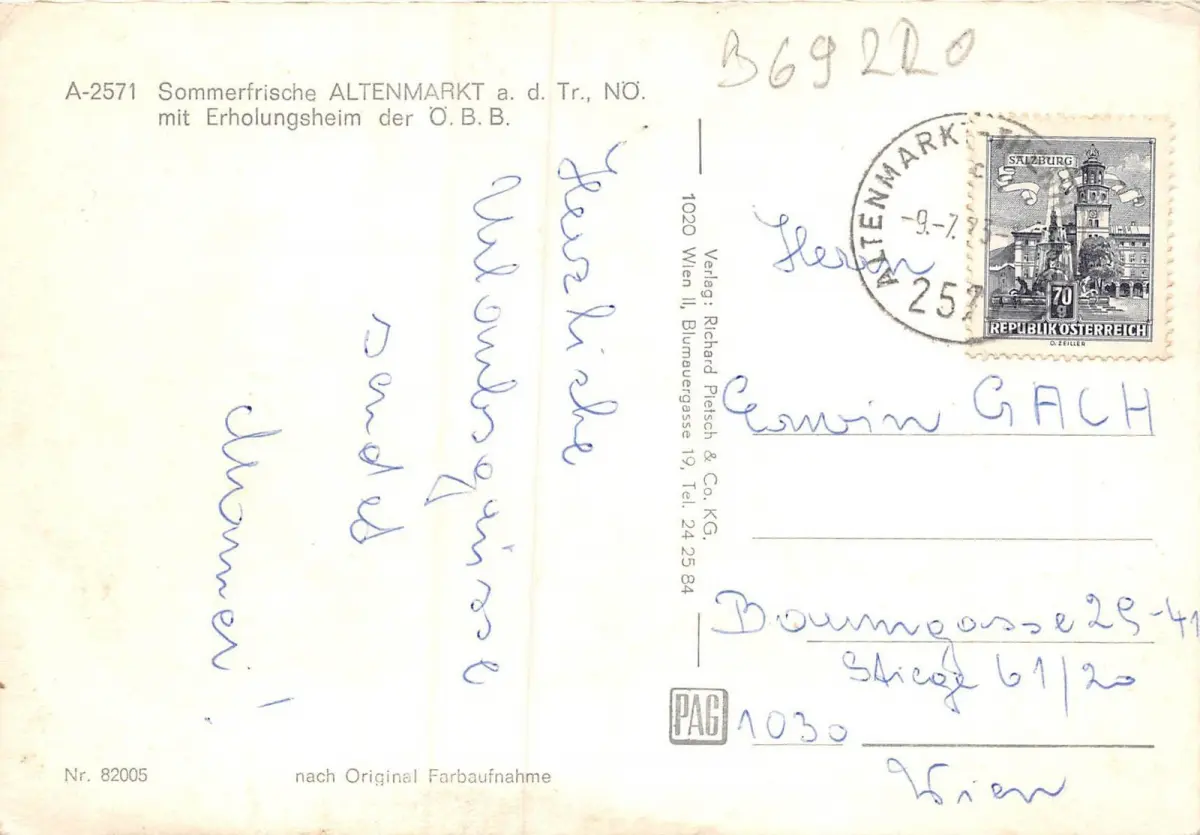 B69220
A-2571 Sommerfrische ALTENMARKT a. d. Tr., NÖ.
mit Erholungsheim der Ö. B. B.
Herzliche
Urlaubsgrüsse
sendet
Mammi!
Verlag: Richard Pietsch & Co. KG.
1020 Wien II, Blumauergasse 19, Tel. 24 25 84
ALTENMARKT-
-9.-7.73-
257
SALZBURG
70
g
REPUBLIK ÖSTERREICH
O. ZEILLER
Herrn
Erwin GACH
Baumgasse 29-41
Stiege 61/20
1030
Wien
PAG
Nr. 82005
nach Original Farbaufnahme